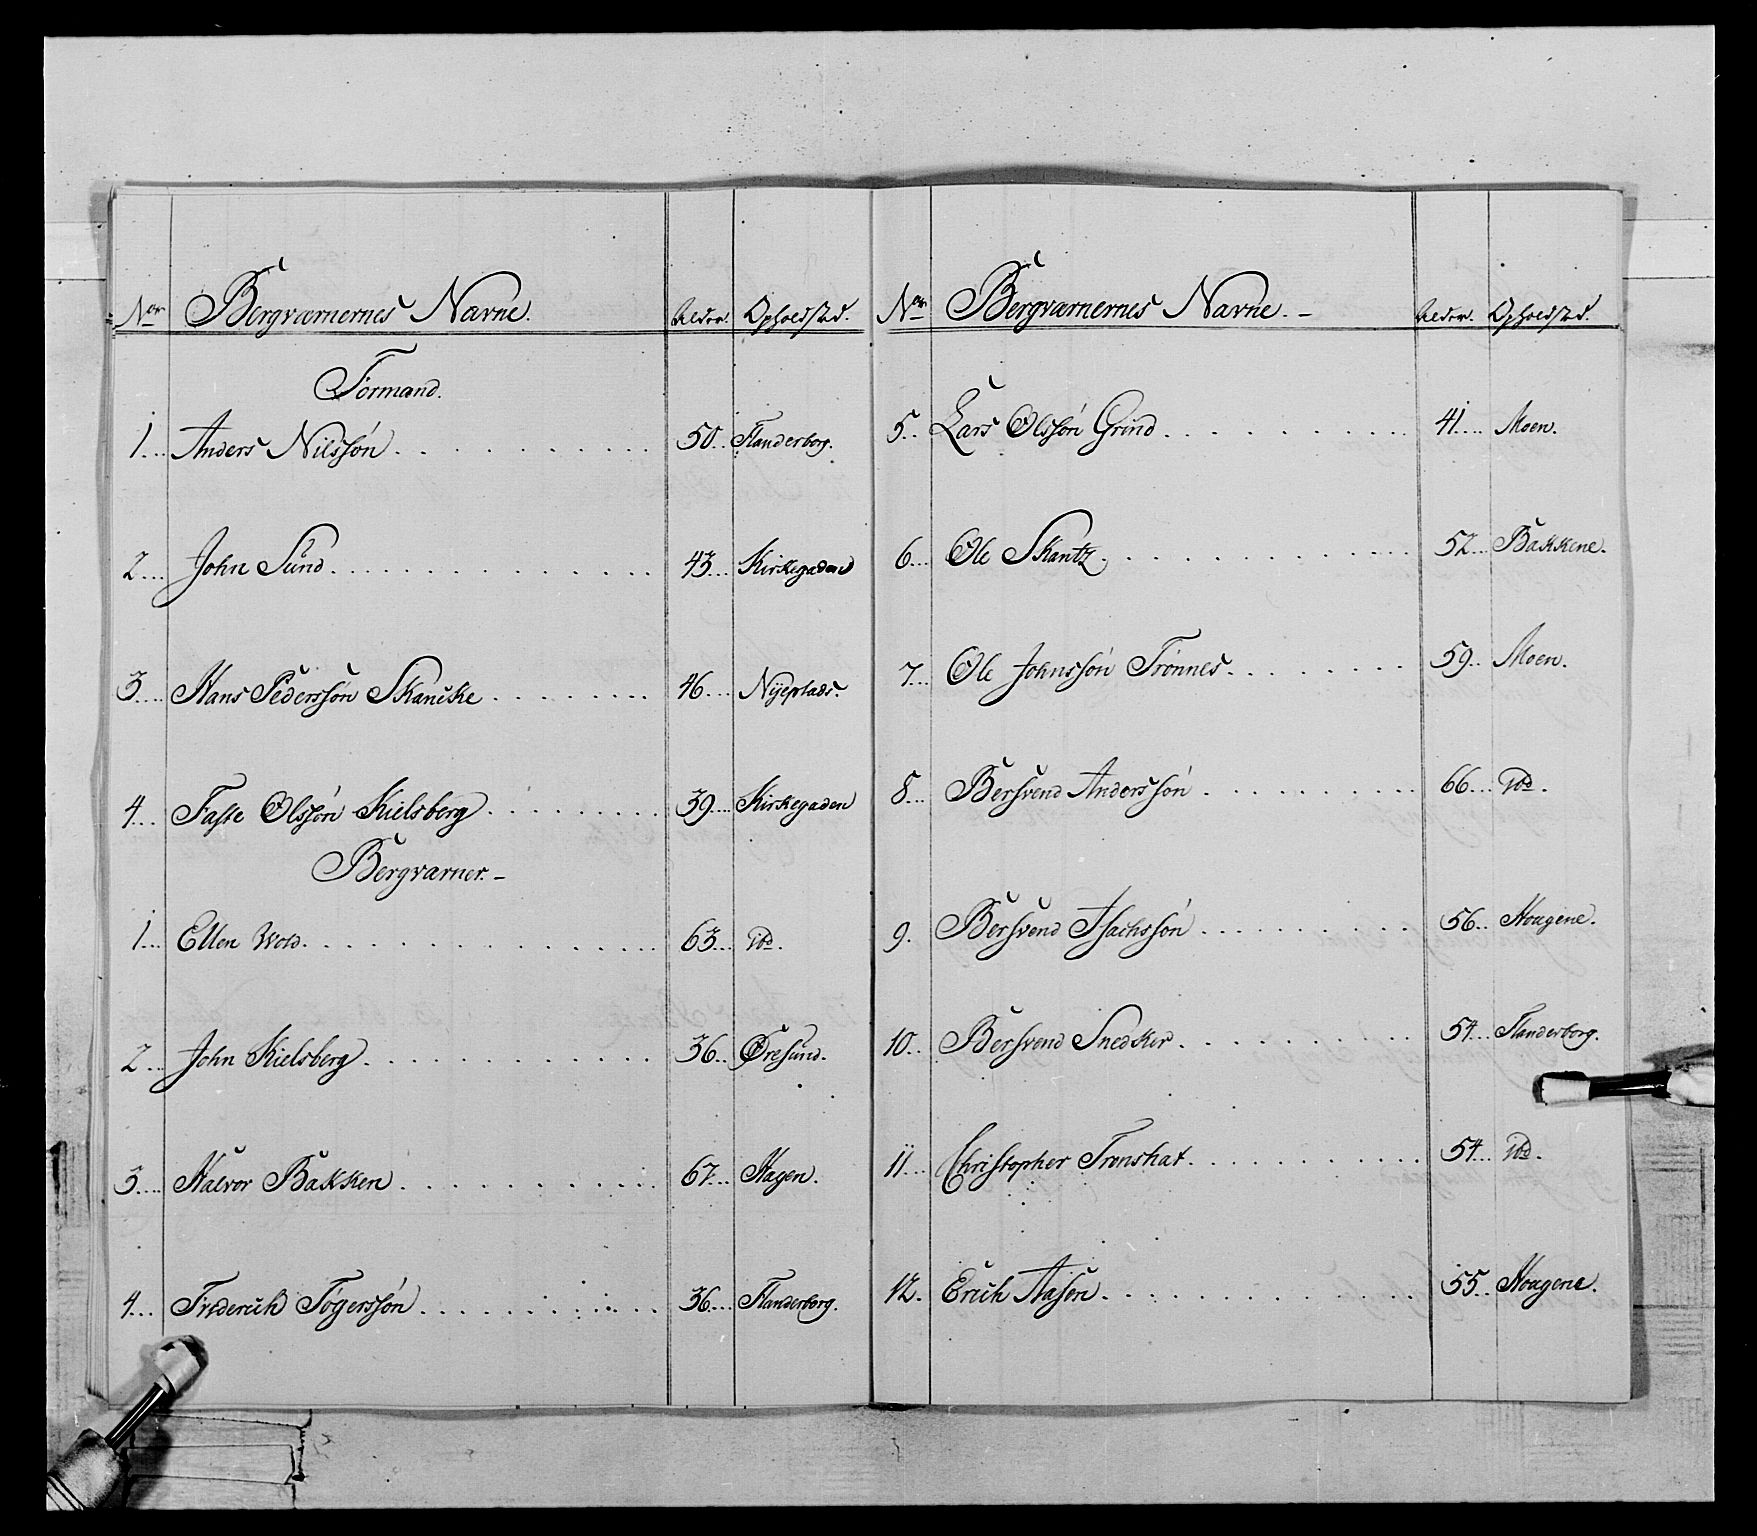 Nor Bergværnernes Navne. Alder. Opholdstæd.
Formand.
1... Anders Nilssøn 50.. Flanderborg.
2... John Sund 43... Kirkegaden
3... Hans Pederssøn Skancke 46... Nyeplads.
4... Faste Olssøn Kielsberg 39... Kirkegaden
Bergværner. -
1... Ellen Wold 63... ibd.
2... John Kielsberg 36.. Øresund.
3... Halvor Bakken 67... Hagen.
4... Friderich Tøgerssøn 36... Flanderborg.
Nor Bergværnernes Navne. - Alder. Opholdstæd.
5.. Lars Olssøn Grind 41... Moen.
6... Ole Skantz 52... Bakkene.
7... Ole Johnssøn Trønnes 59.. Moen.
8... Bersvend Anderssøn 66... ibd.
9. Bersvend Isachssøn 56.. Hougene.
10.. Bersvend Snedker 54... Flanderborg.
11... Christopher Trønshat 54... ibd.
12. Erich Aasen 55.. Hougene.